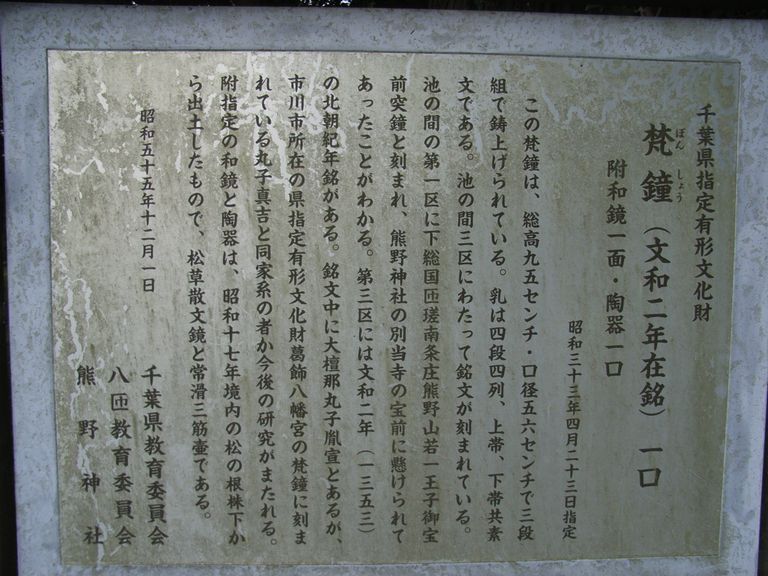 千葉県指定有形文化財
梵鐘（文和二年在銘）一口
ぼんしょう
附和鏡一面・陶器一口
昭和三十三年四月二十三日指定
この梵鐘は、総高九五センチ・口径五六センチで三段
組で鋳上げられている。乳は四段四列、上帯、下帯共素
文である。池の間三区にわたって銘文が刻まれている。
池の間の第一区に下総国匝瑳南条庄熊野山若一王子御宝
前突鐘と刻まれ、熊野神社の別当寺の宝前に懸けられて
あったことがわかる。第三区には文和二年（一三五三）
の北朝紀年銘がある。銘文中に大檀那丸子胤宣とあるが、
市川市所在の県指定有形文化財葛飾八幡宮の梵鐘に刻ま
れている丸子真吉と同家系の者か今後の研究がまたれる。
附指定の和鏡と陶器は、昭和十七年境内の松の根株下か
ら出土したもので、松草散文鏡と常滑三筋壷である。
昭和五十五年十二月一日
千葉県教育委員会
八匝教育委員会
熊野神社